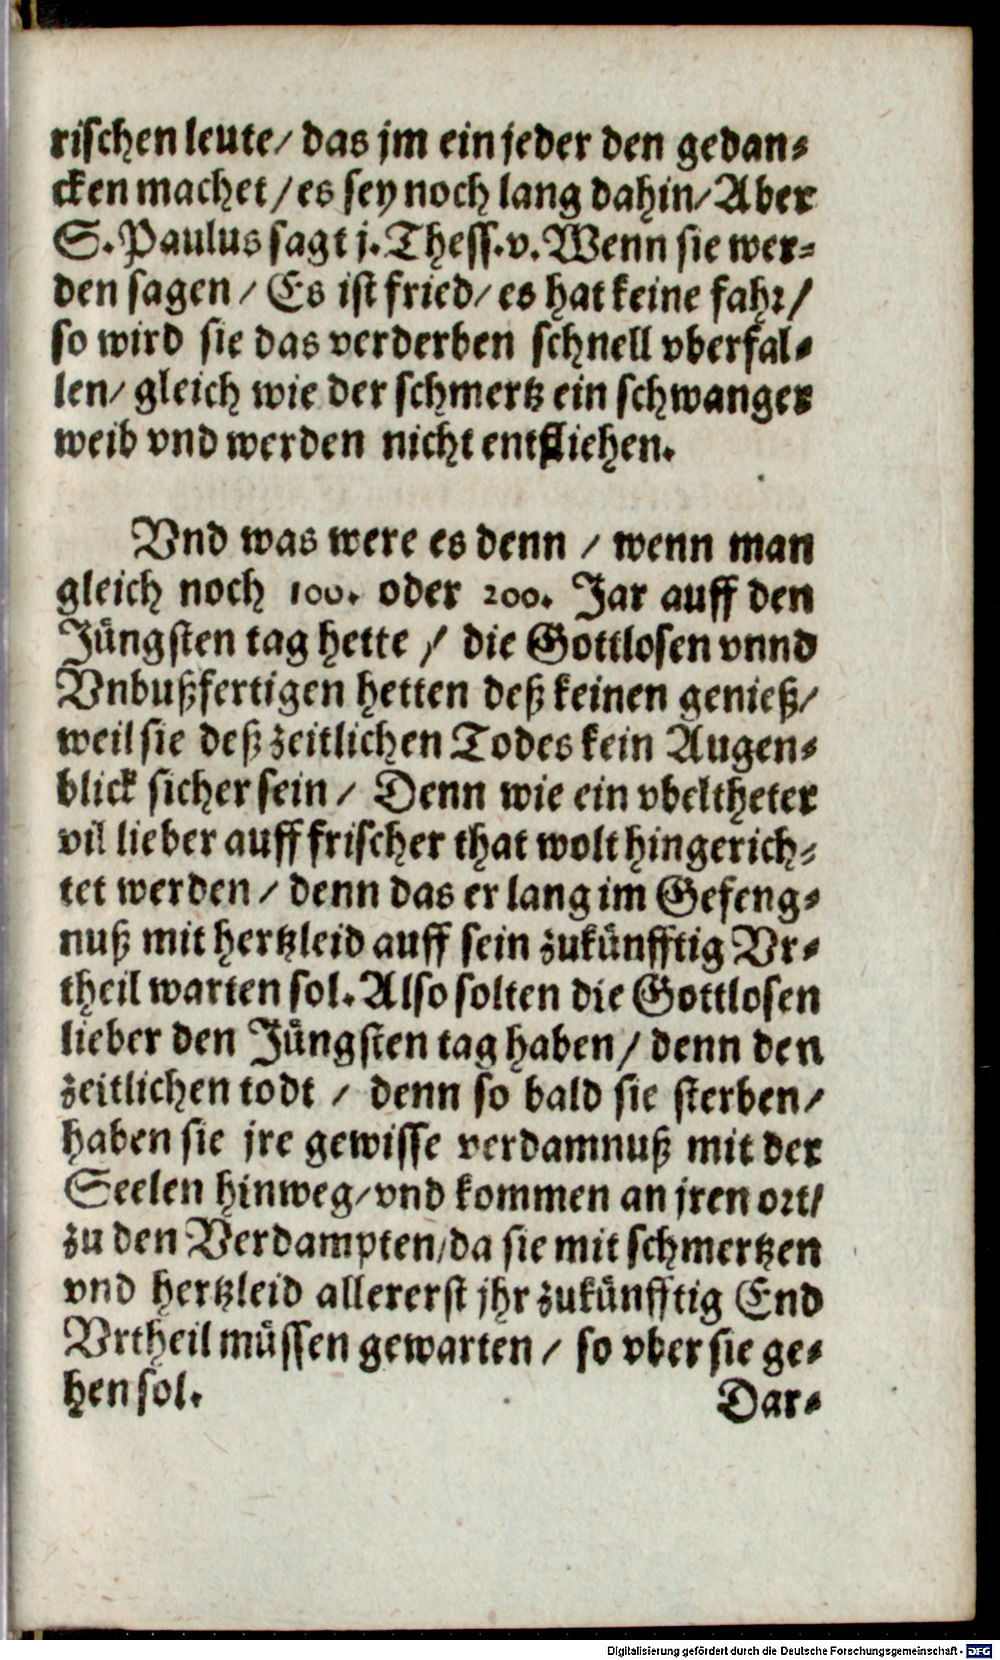 rischen leute/ das jm ein jeder den gedan-
cken machet/ es sey noch lang dahin/ Aber
S. Paulus sagt j. Thess. v. Wenn sie wer-
den sagen/ Es ist fried/ es hat keine fahr/
so wird sie das verderben schnell vberfal-
len/ gleich wie der schmertz ein schwanger
weib vnd werden nicht entfliehen.
Vnd was were es denn/ wenn man
gleich noch 100. oder 200. Jar auff den
Jüngsten tag hette/ die Gottlosen vnnd
Vnbußfertigen hetten deß keinen genieß/
weil sie deß zeitlichen Todes kein Augen-
blick sicher sein/ Denn wie ein vbeltheter
vil lieber auff frischer that wolt hingerich-
tet werden/ denn das er lang im Gefeng-
nuß mit hertzleid auff sein zukünfftig Vr-
theil warten sol. Also solten die Gottlosen
lieber den Jüngsten tag haben/ denn den
zeitlichen todt/ denn so bald sie sterben/
haben sie jre gewisse verdamnuß mit der
Seelen hinweg/ vnd kommen an jren ort/
zu den Verdampten/ da sie mit schmertzen
vnd hertzleid allererst jhr zukünfftig End
Vrtheil müssen gewarten/ so vber sie ge-
hen sol.
Dar-
Digitalisierung gefördert durch die Deutsche Forschungsgemeinschaft - DFG